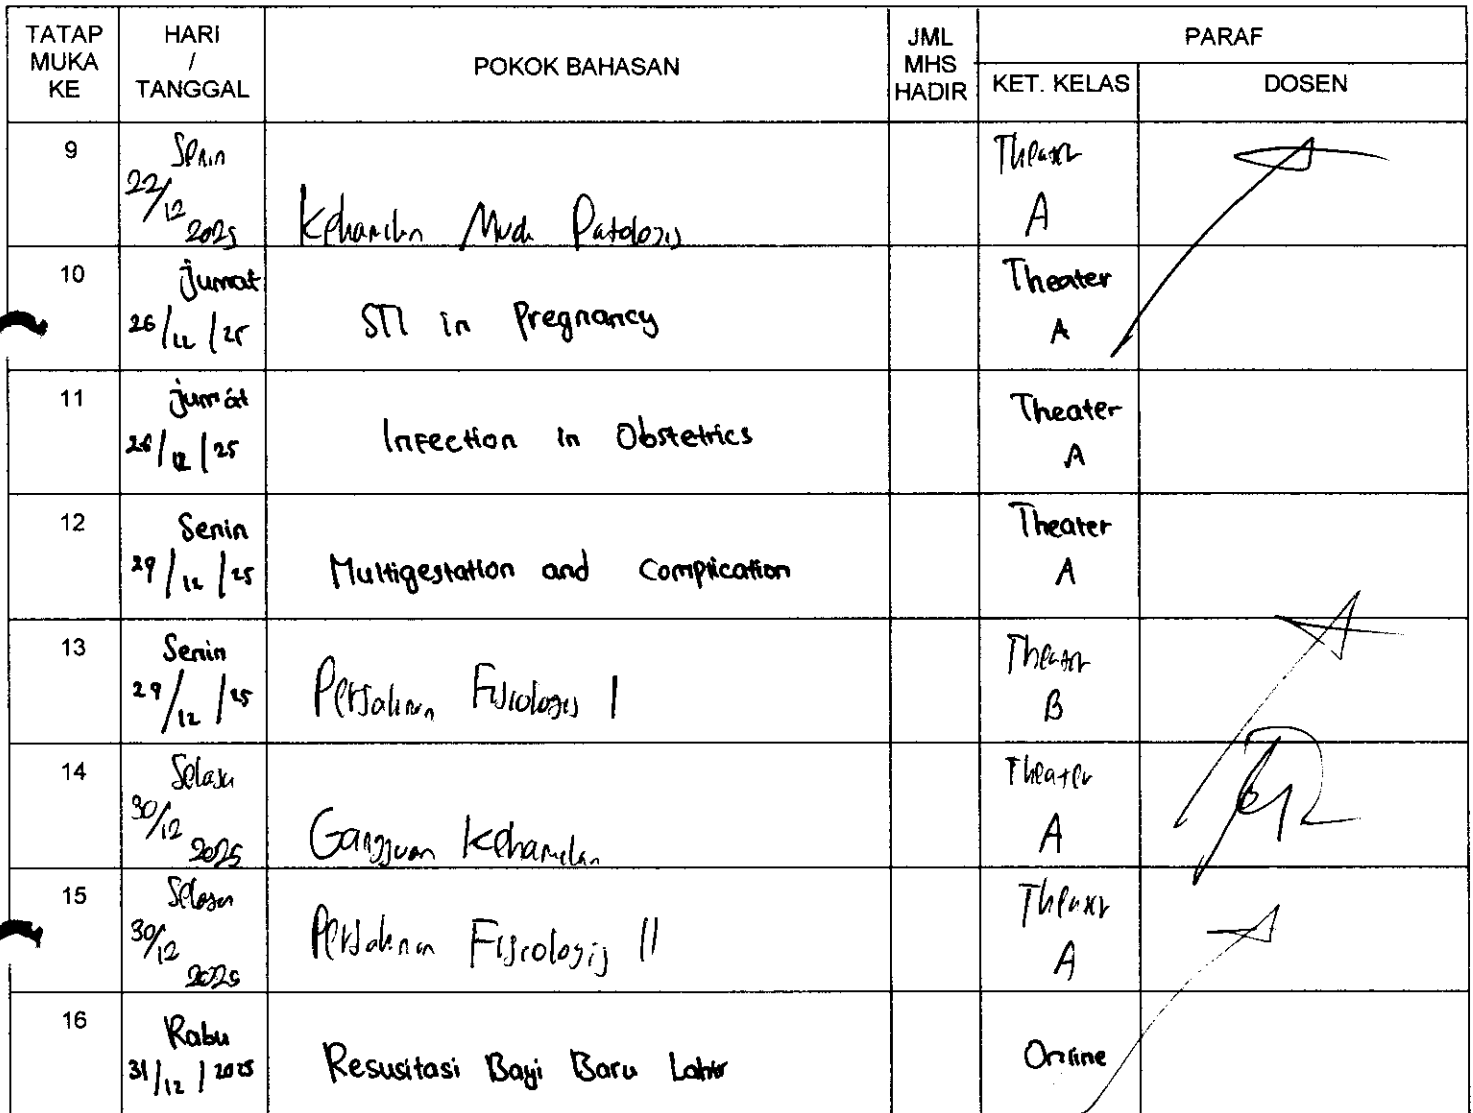 TATAP MUKA KE
HARI / TANGGAL
POKOK BAHASAN
JML MHS HADIR
PARAF
KET. KELAS
DOSEN
9
Senin
22/12 2025
Kehamilan Muda Patologis
Theater
A
10
Jumat
26/12/25
STI in Pregnancy
Theater
A
11
Jumat
26/12/25
Infection in Obstetrics
Theater
A
12
Senin
29/12/25
Multigestation and Complication
Theater
A
13
Senin
29/12/25
Persalinan Fisiologis I
Theater
B
14
Selasa
30/12 2025
Gangguan Kehamilan
Theater
A
15
Selasa
30/12 2025
Persalinan Fisiologis II
Theater
A
16
Rabu
31/12/2025
Resusitasi Bayi Baru Lahir
Online